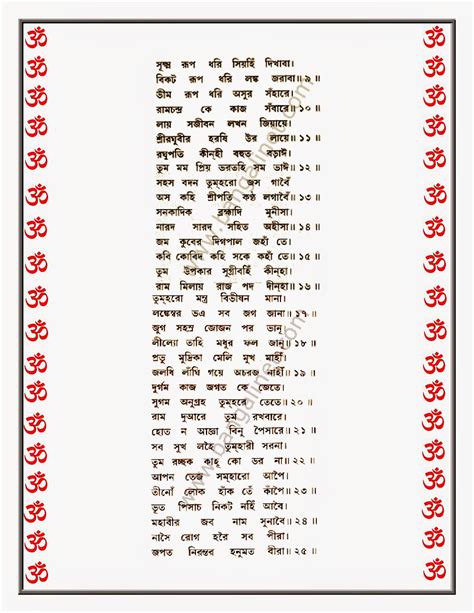 সূক্ষ্ম রূপ ধরি সিয়হিঁ দিখাবা।
বিকট রূপ ধরি লঙ্ক জরাবা॥ ৯ ॥
ভীম রূপ ধরি অসুর সঁহারে।
রামচন্দ্র কে কাজ সঁবারে॥ ১০ ॥
লায় সজীবন লখন জিয়ায়ে।
শ্রীরঘুবীর হরষি উর লায়ে॥ ১১ ॥
রঘুপতি কীন্হী বহুত বড়াঈ।
তুম মম প্রিয় ভরতহি সম ভাঈ॥ ১২ ॥
সহস বদন তুম্হরো জস গাবৈঁ
অস কহি শ্রীপতি কণ্ঠ লগাবৈঁ॥ ১৩ ॥
সনকাদিক ব্রহ্মাদি মুনীসা।
নারদ সারদ সহিত অহীসা॥ ১৪ ॥
জম কুবের দিগপাল জহাঁ তে।
কবি কোবিদ কহি সকে কহাঁ তে॥ ১৫ ॥
তুম উপকার সুগ্রীবহিঁ কীন্হা।
রাম মিলায় রাজ পদ দীন্হা॥ ১৬ ॥
তুম্হরো মন্ত্র বিভীষন মানা।
লঙ্কেস্বর ভএ সব জগ জানা॥ ১৭ ॥
জুগ সহস্র জোজন পর ভানূ।
লীল্যো তাহি মধুর ফল জানূ॥ ১৮ ॥
প্রভু মুদ্রিকা মেলি মুখ মাহীঁ।
জলধি লাঁঘি গয়ে অচরজ নাহীঁ॥ ১৯ ॥
দুর্গম কাজ জগত কে জেতে।
সুগম অনুগ্রহ তুম্হরে তেতে॥ ২০ ॥
রাম দুআরে তুম রখবারে।
হোত ন আজ্ঞা বিনু পৈসারে॥ ২১ ॥
সব সুখ লহৈ তুম্হারী সরনা।
তুম রচ্ছক কাহূ কো ডর না॥ ২২ ॥
আপন তেজ সম্হারো আপৈ।
তীনোঁ লোক হাঁক তেঁ কাঁপৈ॥ ২৩ ॥
ভূত পিসাচ নিকট নহিঁ আবৈ।
মহাবীর জব নাম সুনাবৈ॥ ২৪ ॥
নাসৈ রোগ হরৈ সব পীরা।
জপত নিরন্তর হনুমত বীরা॥ ২৫ ॥
www.bangalinet.com
www.bangalinet.com